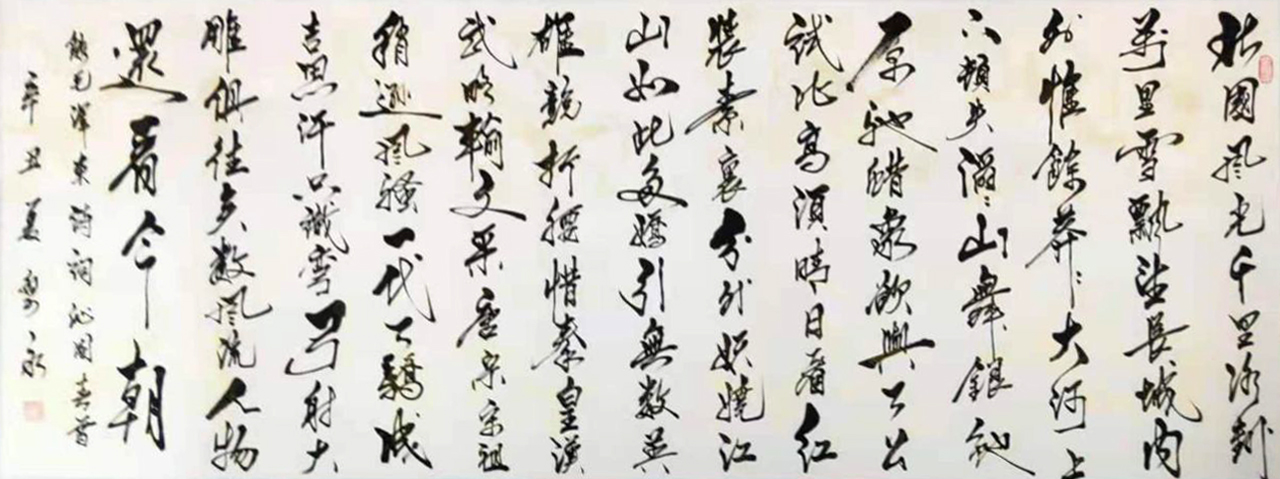 北國風光千里冰封
萬里雪飄望長城内
外惟餘莽〻大河上
下頓失滔〻山舞銀蛇
原馳蠟象欲與天公
試比高須晴日看紅
裝素裹分外妖嬈江
山如此多嬌引無數英
雄競折腰惜秦皇漢
武略輸文采唐宗宋祖
稍遜風騷一代天驕成
吉思汗只識彎弓射大
雕俱往矣數風流人物
還看今朝
錄毛澤東詩詞沁園春雪
辛丑夏永